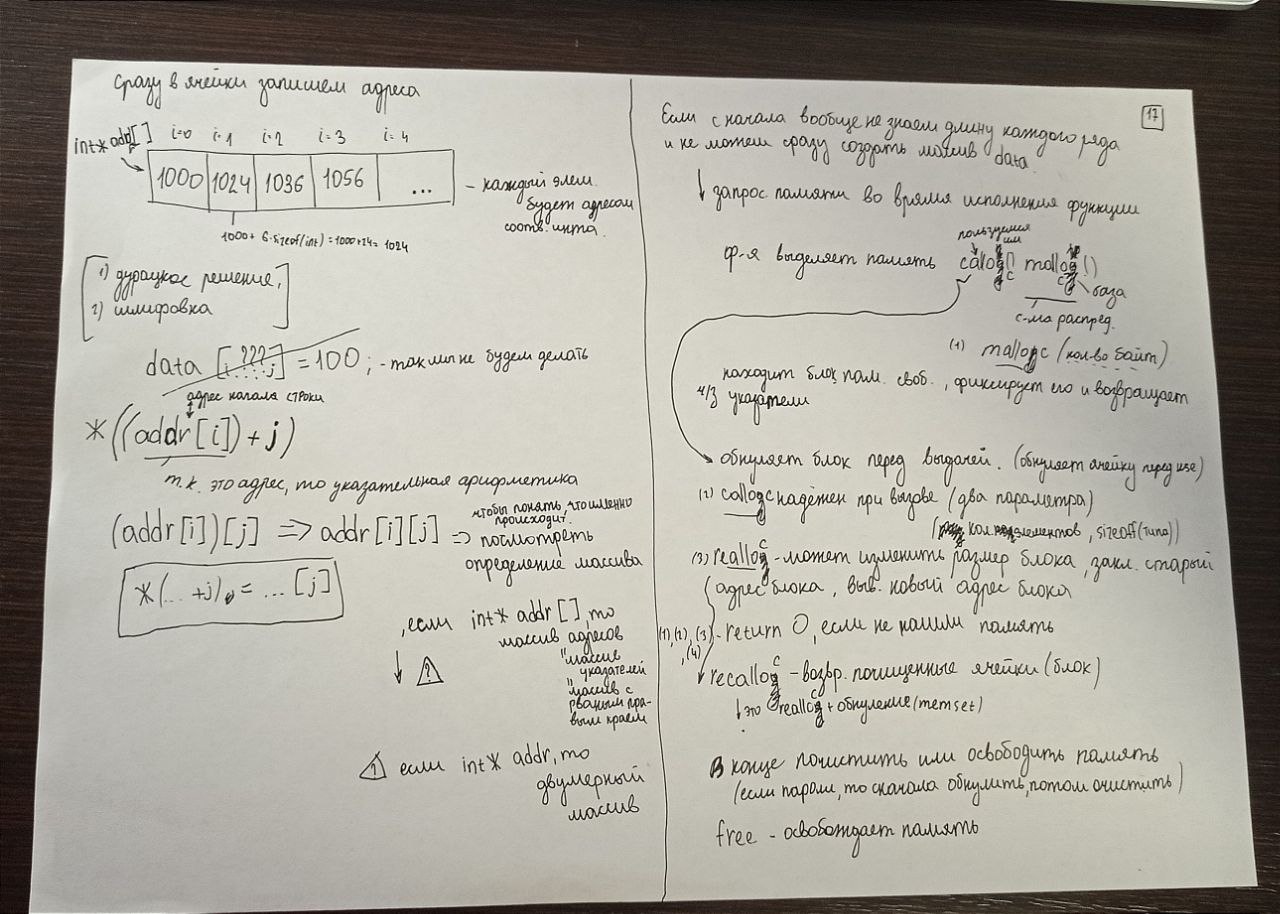 Сразу в ячейки запишем адреса
int* addr[]
i=0 i=1 i=2 i=3 i=4
1000 1024 1036 1056 ...
- каждый элем.
будет адресом
соотв. инта.
1000+ 6·sizeof(int) = 1000+24= 1024
1) дурацкое решение,
2) шлифовка
data [i ??? j] = 100; - так мы не будем делать
адрес начала строки
*((addr[i])+j)
т.к. это адрес, то указательная арифметика
(addr[i])[j] => addr[i][j] =>
чтобы понять, что именно
происходит.
посмотреть
определение массива
*(... +j) = ... [j]
, если int* addr[], то
массив адресов
"массив
указателей
"массив с
рваным пра-
вым краем
? если int* addr, то
двумерный
массив
17
Если с начала вообще не знаем длину каждого ряда
и не можем сразу создать массив data.
↓ запрос памяти во время исполнения функции
пользуемся
им
ф-я выделяет память calloc() malloc()
база
с-ма распред.
(1) malloc (кол-во байт)
находит блок пам. своб., фиксирует его и возвращает
указатели
обнуляет блок перед выдачей. (обнуляет ячейку перед use)
(2) calloc надёжен при вызове (два параметра)
(кол. элементов, sizeoff(типа))
(3) realloc - может изменить размер блока, закл. старый
адрес блока, выв. новый адрес блока
(1),(2),(3),(4) - return 0, если не нашли память
recalloc - возвр. почищенные ячейки (блок)
↓ это realloc + обнуление (memset)
В конце почистить или освободить память
(если пароли, то сначала обнулить, потом очистить)
free - освобождает память